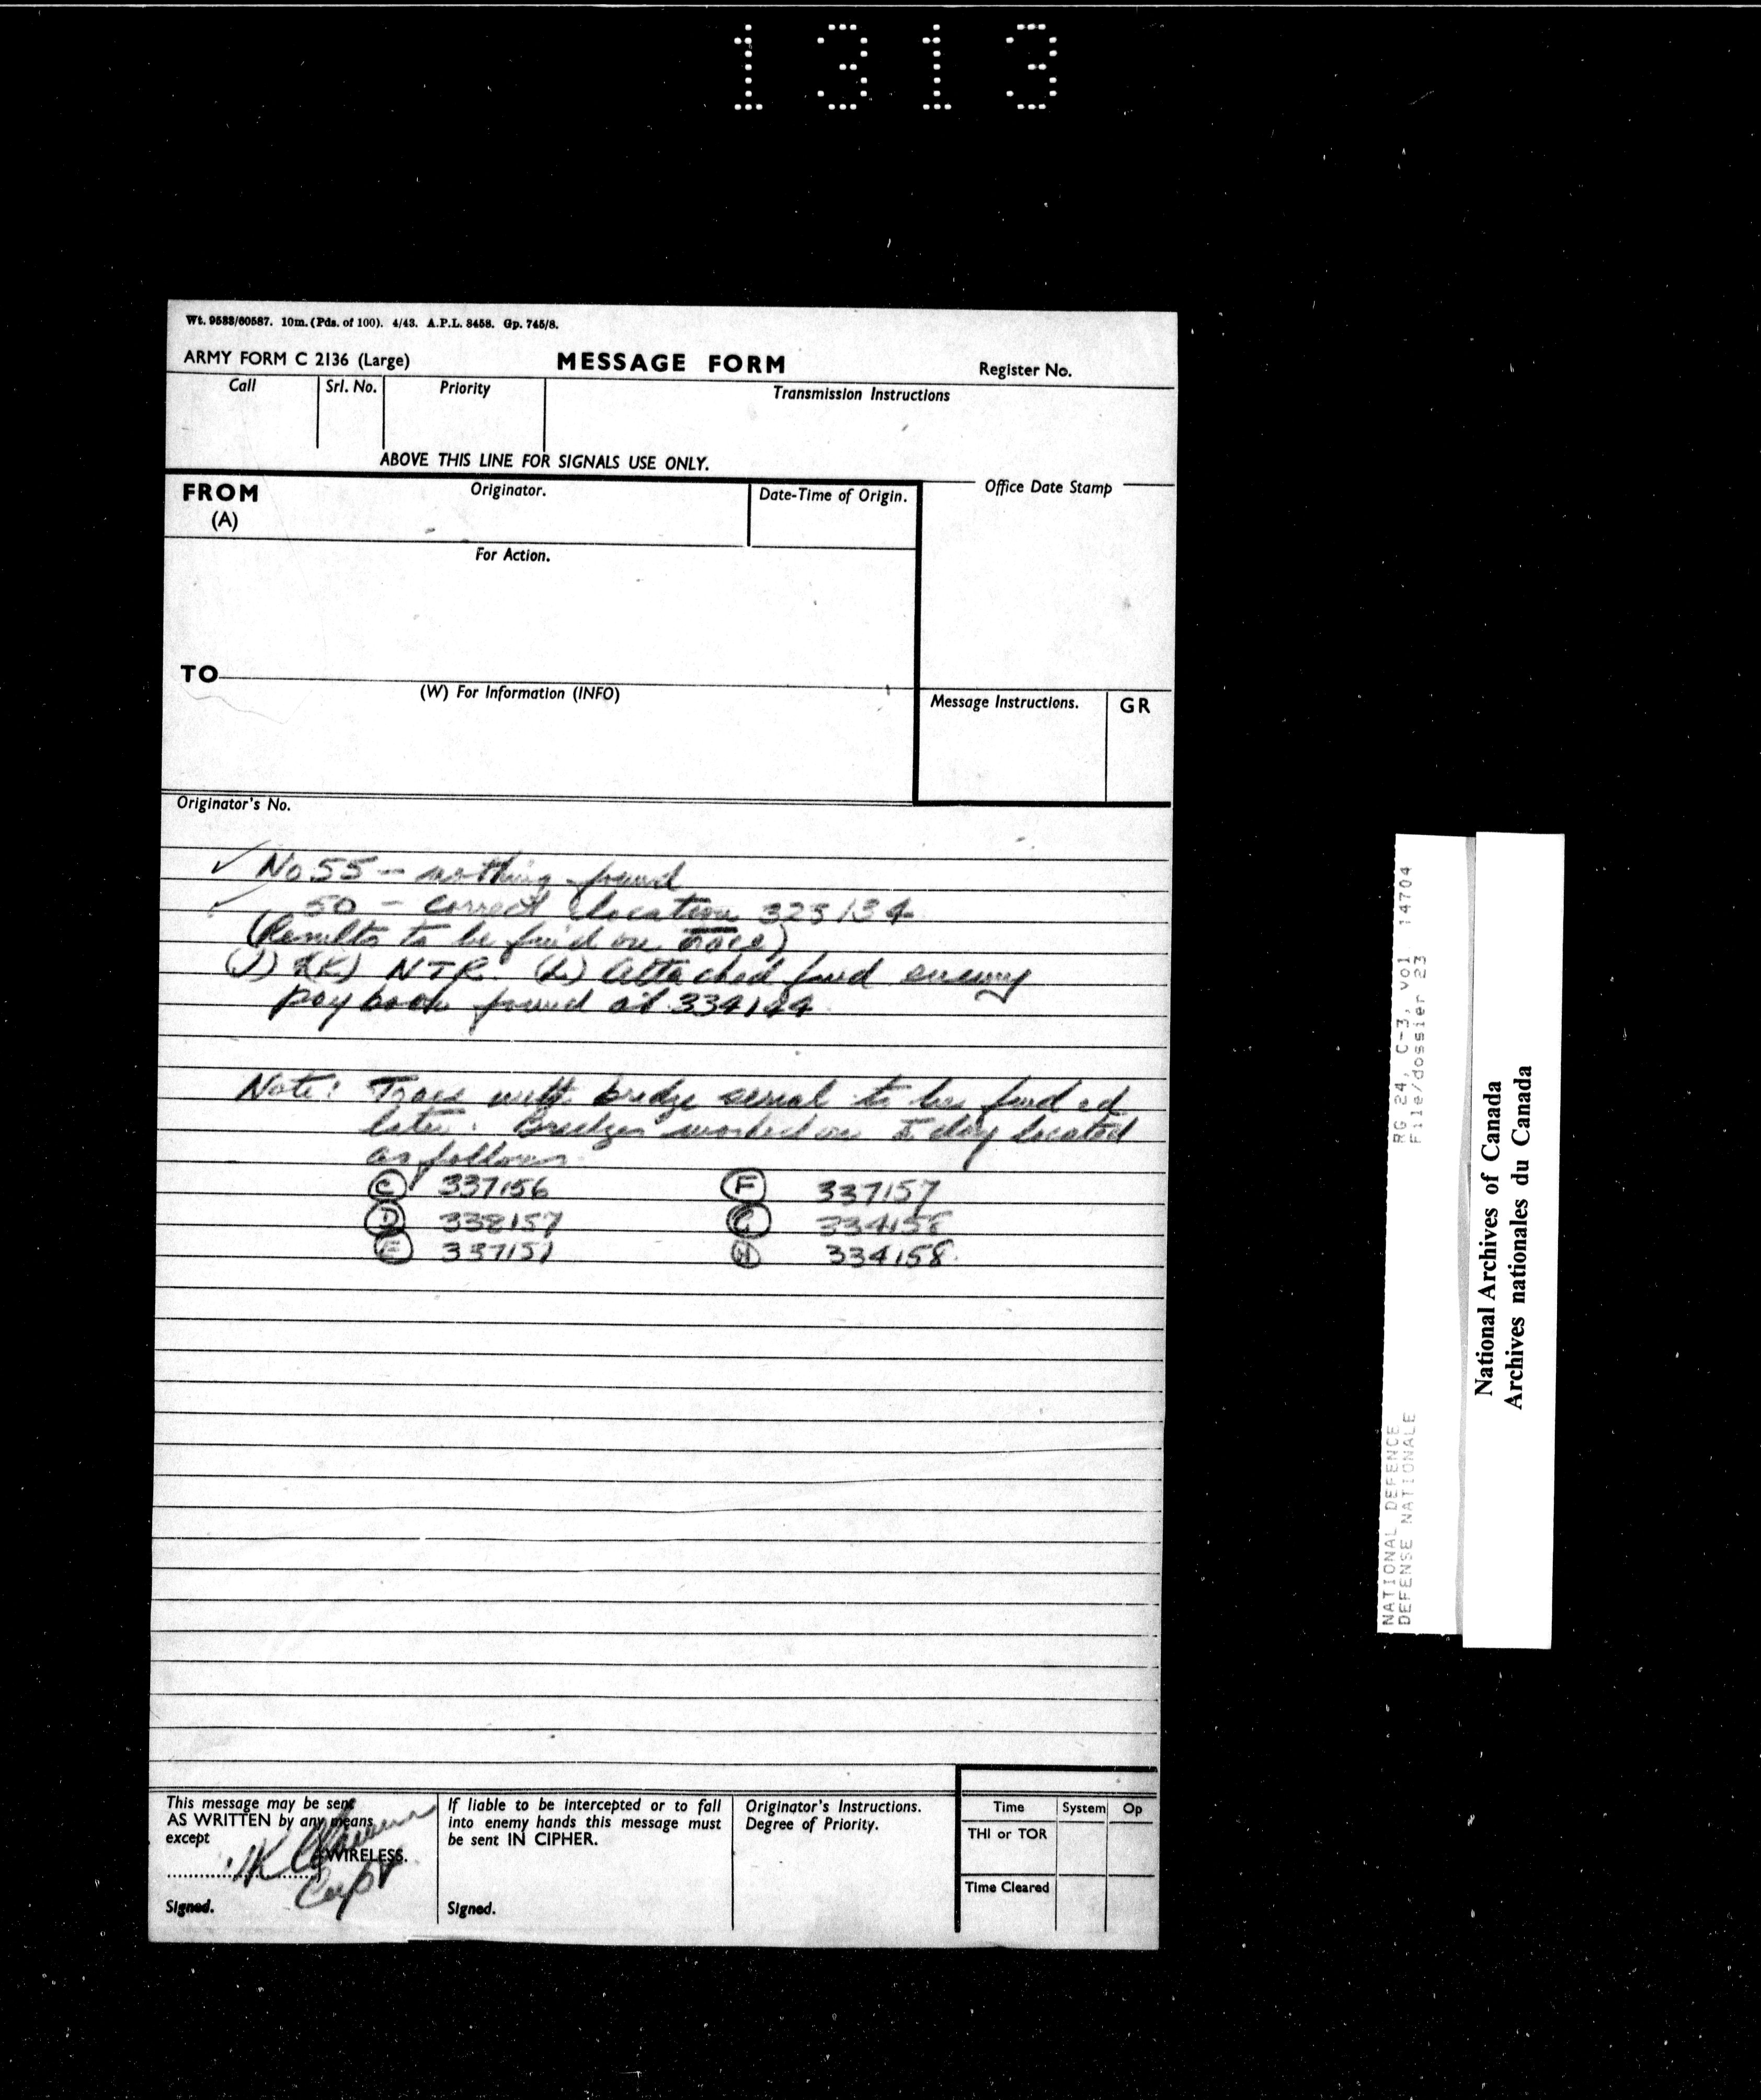 1313
Wt. 9533/60587. 10m. (Pds. of 100). 4/43. A.P.L. 8458. Gp. 745/8.
ARMY FORM C 2136 (Large) MESSAGE FORM Register No.
Call Srl. No. Priority Transmission Instructions
ABOVE THIS LINE FOR SIGNALS USE ONLY.
FROM (A) Originator. Date-Time of Origin. Office Date Stamp
For Action.
TO
(W) For Information (INFO) Message Instructions. GR
Originator's No.
✓ No 55 — nothing found
✓ 50 — correct location 323134
(Results to be fwd on trace)
(J) & (K) NTR. (L) Attached fwd enemy
pay book found at 334144
Note: Trace with bridge serial to be fwd ed
later. Bridges worked on today located
as follows
(C) 337156 (F) 337157
(D) 338157 (G) 334158
(E) 337151 (H) 334158.
This message may be sent
AS WRITTEN by any means
except
WIRELESS.
Capt
Signed.
If liable to be intercepted or to fall
into enemy hands this message must
be sent IN CIPHER.
Signed.
Originator's Instructions.
Degree of Priority.
Time System Op
THI or TOR
Time Cleared
RG 24, C-3, vol 14704
File/dossier 23
NATIONAL DEFENCE
DEFENSE NATIONALE
National Archives of Canada
Archives nationales du Canada